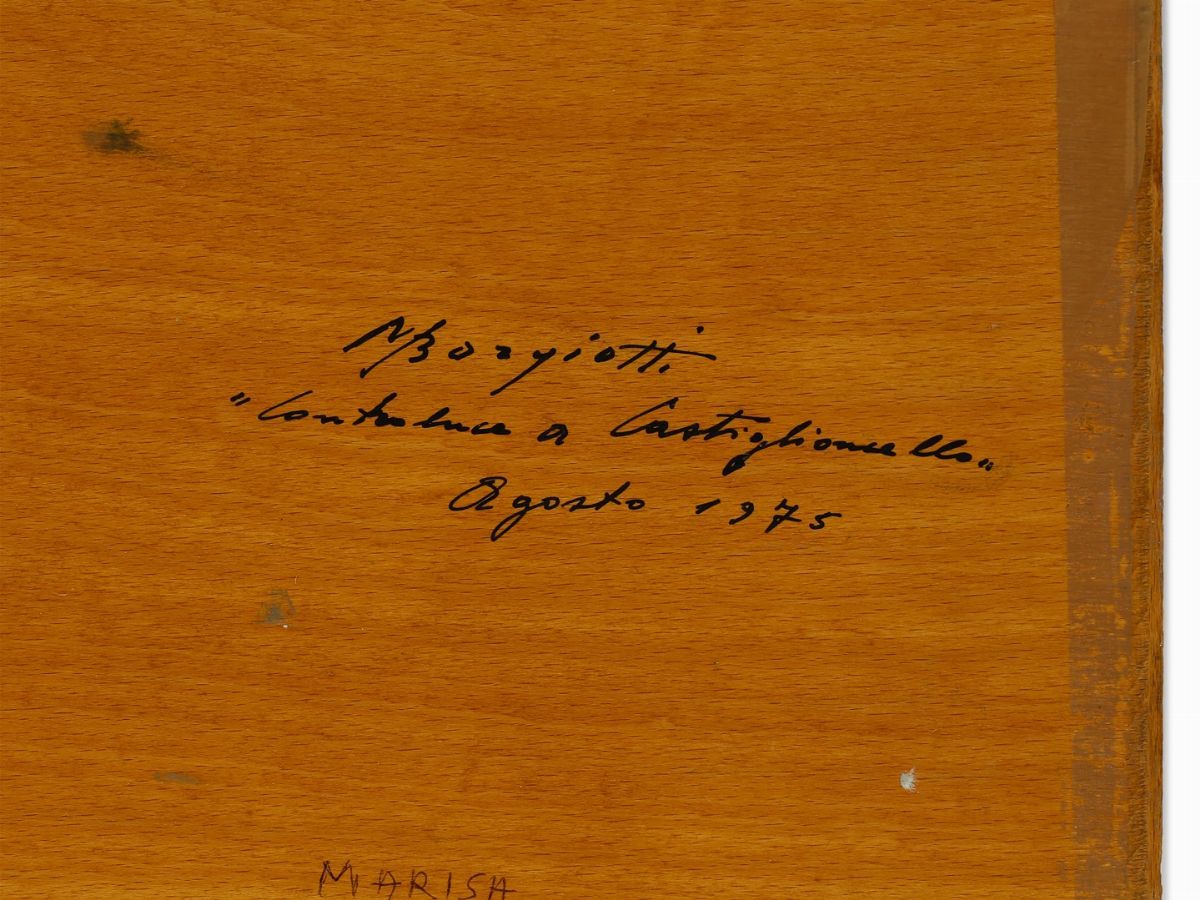 MBorgiotti
"Controluce a Castiglioncello"
Agosto 1975
MARISA